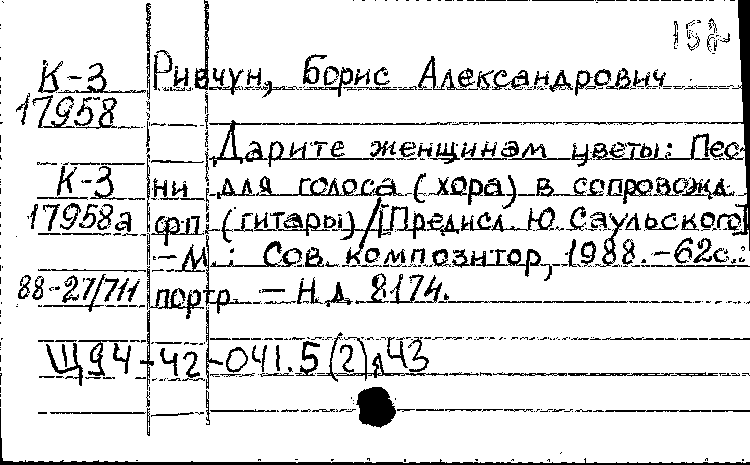 152
К-3 Ривчун, Борис Александрович
17958
Дарите женщинам цветы: Пес-
К-3 ни для голоса (хора) в сопровожд.
17958а фп. (гитары)/[Предисл. Ю. Саульского]
—М.: Сов. композитор, 1988.-62с.:
88-27/711 портр. — Н.д. 8174.
Щ94-42-041.5(2)я43